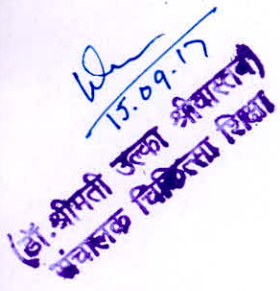 15.09.17
(डॉ. श्रीमती उल्का श्रीवास्तव)
संचालक चिकित्सा शिक्षा